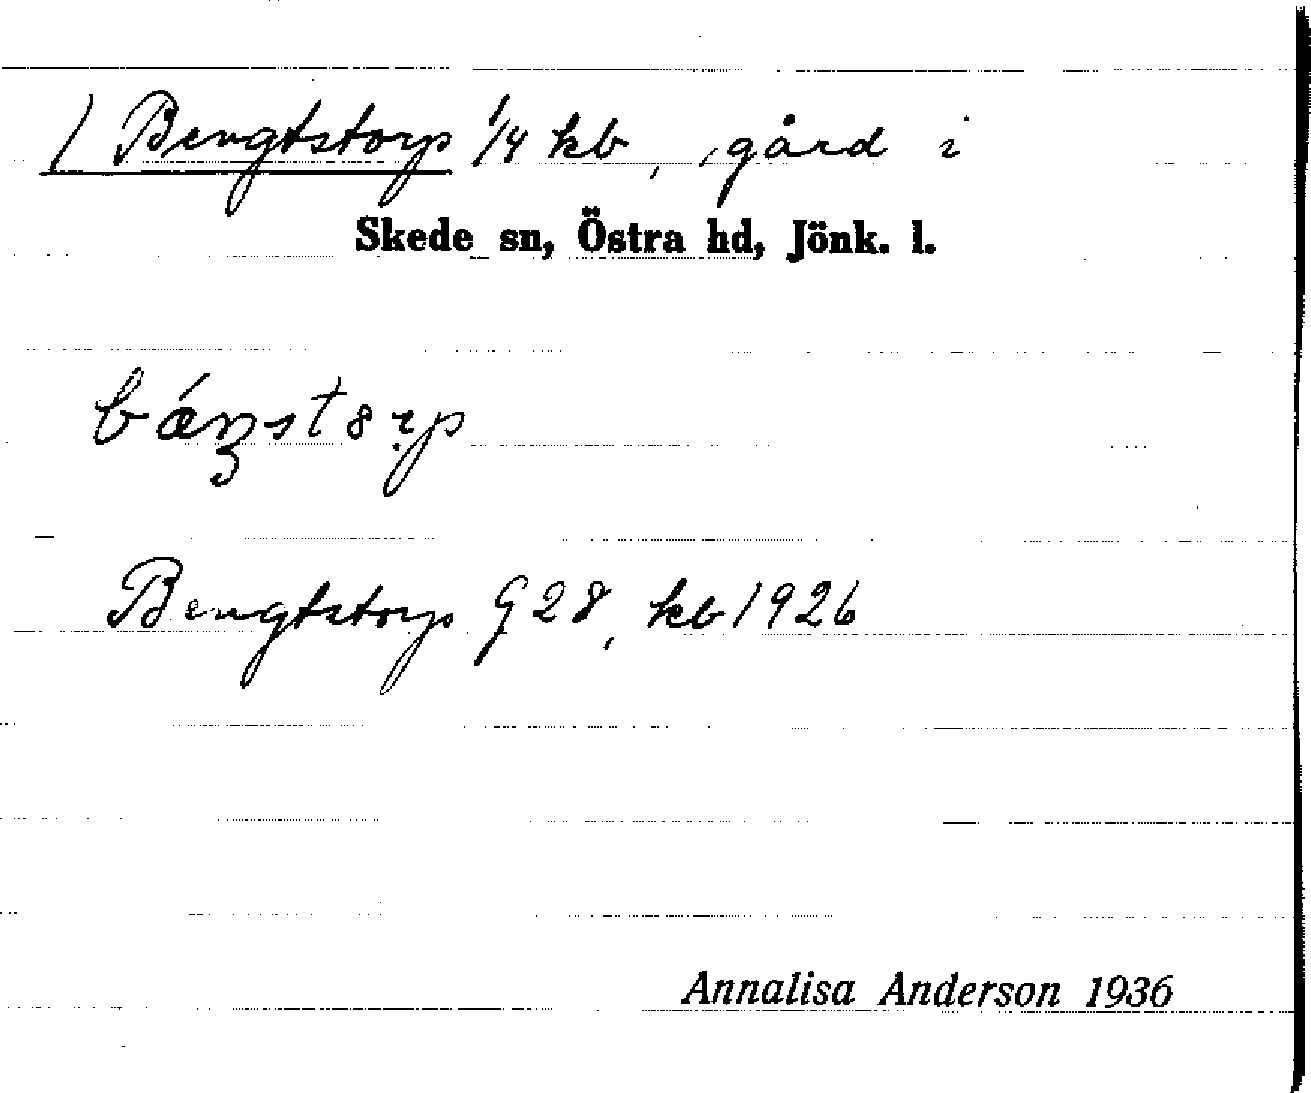 / Bengtstorp 1/4 kb, gård i
Skede sn, Östra hd, Jönk. l.
Bengtstorp G 28, kb 1926
Annalisa Anderson 1936